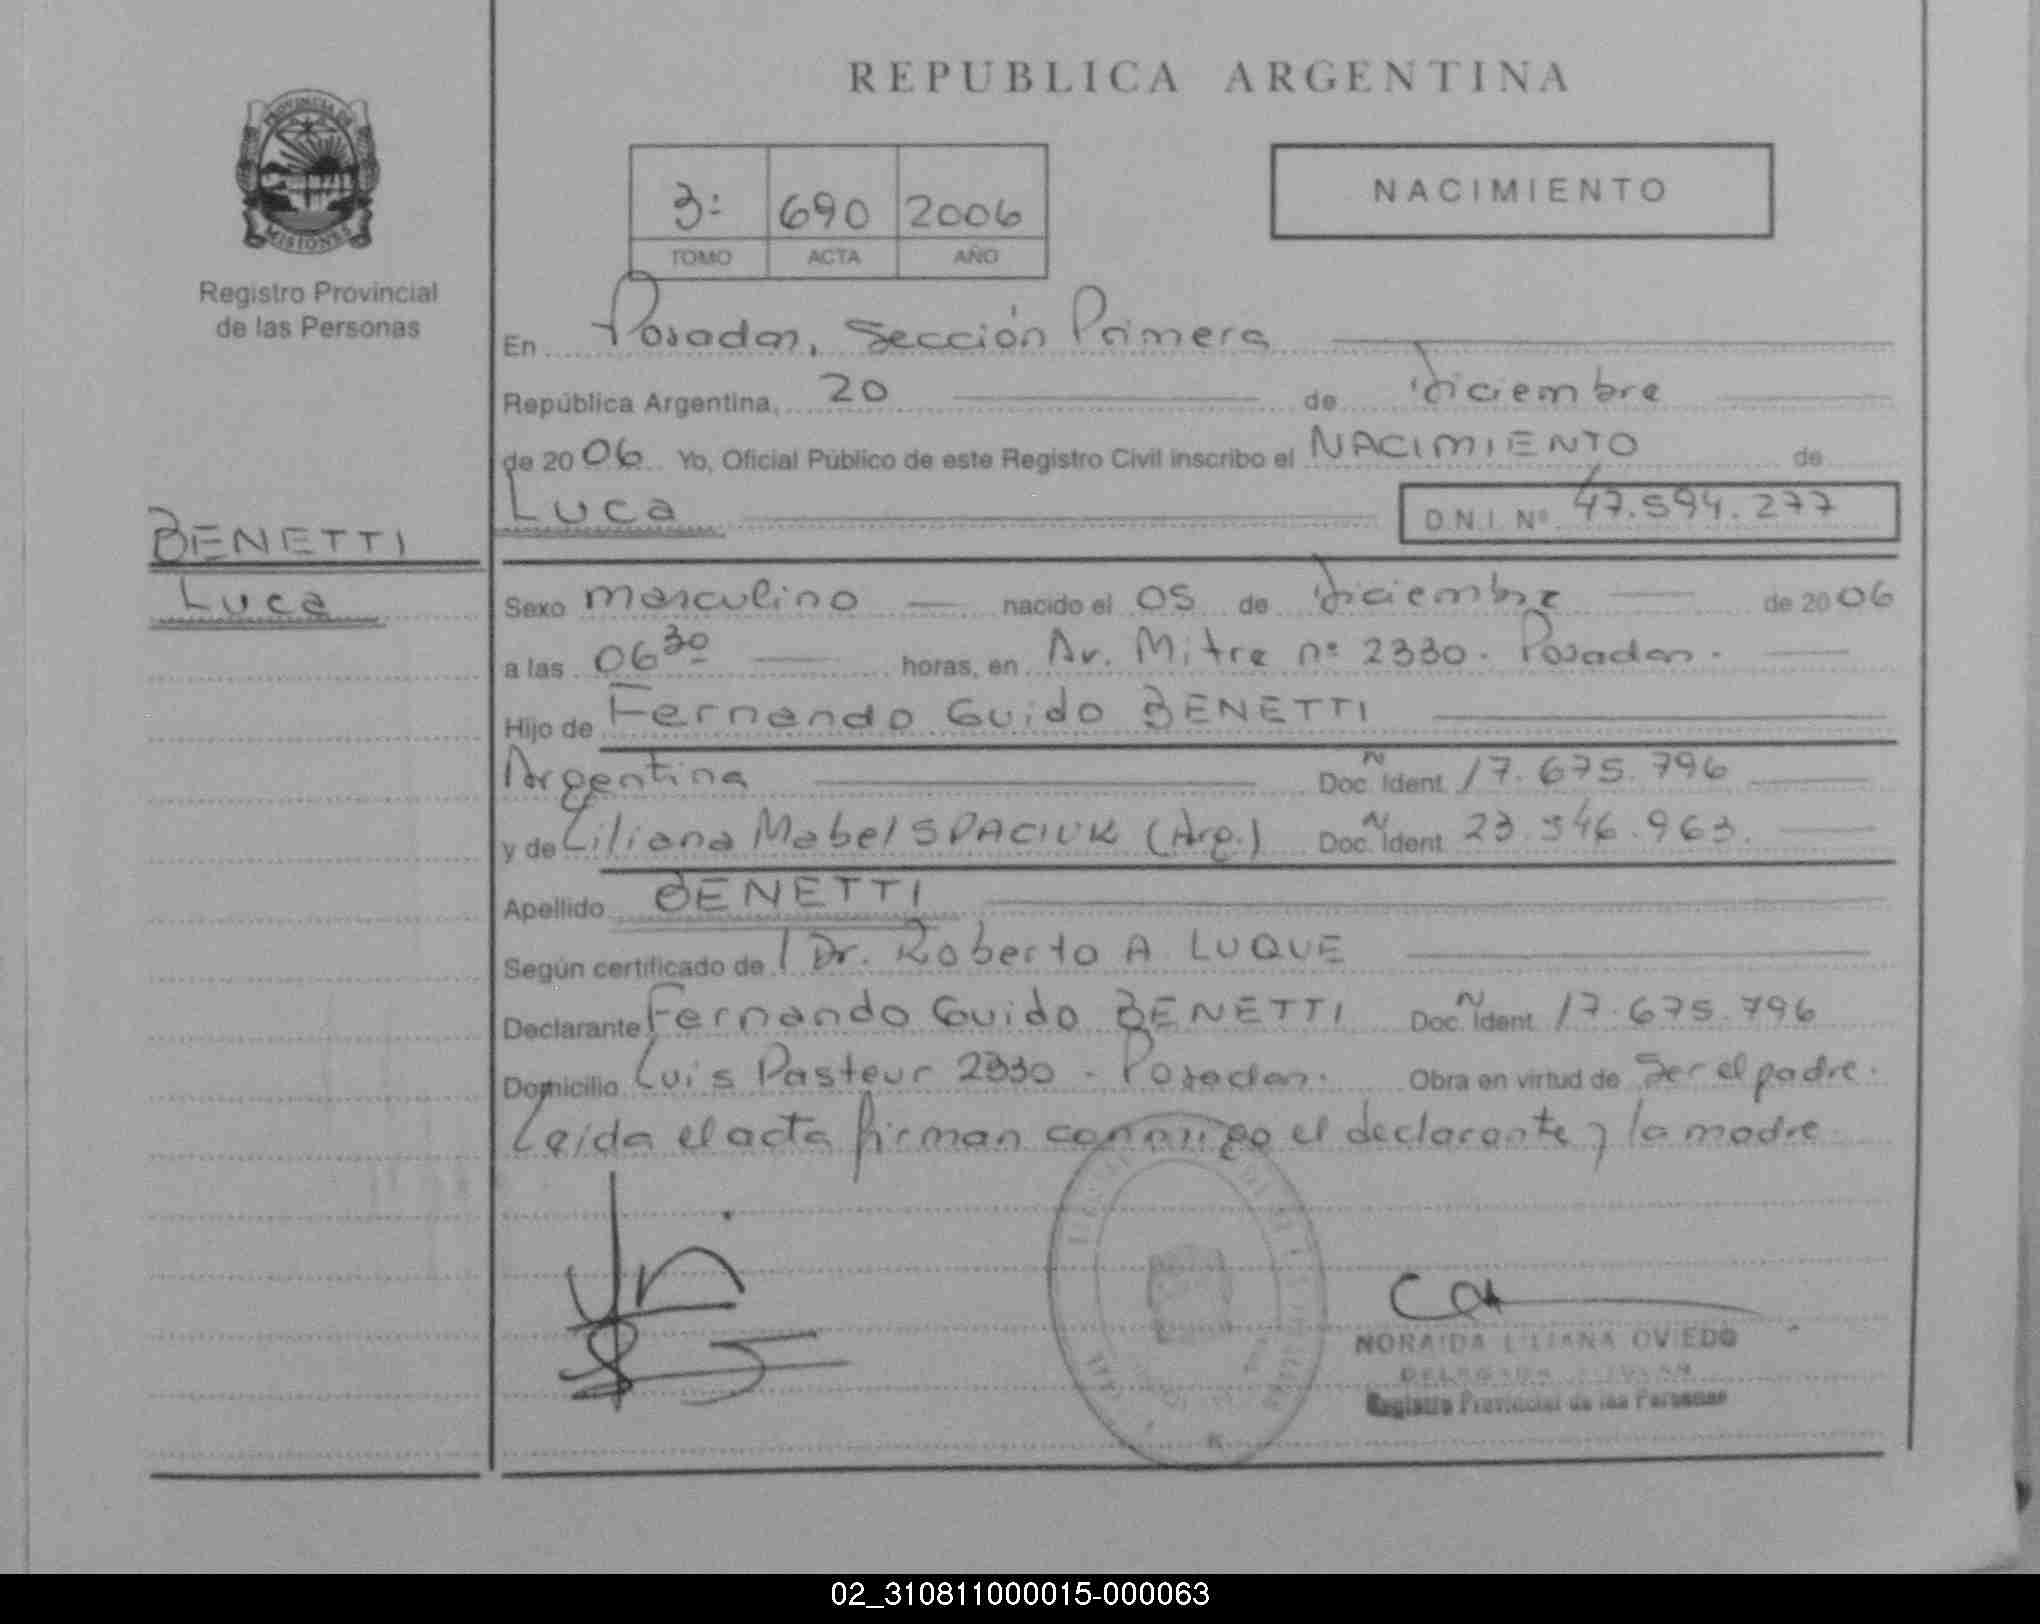 REPUBLICA ARGENTINA
PROVINCIA DE
MISIONES
Registro Provincial
de las Personas
3º 690 2006
TOMO ACTA AÑO
NACIMIENTO
En Posadas, Sección Primera
República Argentina, 20 de diciembre
de 2006 Yo, Oficial Público de este Registro Civil inscribo el NACIMIENTO de
Luca D.N.I. Nº 47.594.277
BENETTI
Luca
Sexo masculino nacido el 05 de diciembre de 2006
a las 06 30 horas, en Av. Mitre nº 2330. Posadas.
Hijo de Fernando Guido BENETTI
Argentina Doc. N Ident. 17.675.796
y de Liliana Mabel SPACIUK (Arg.) Doc. N Ident. 23.546.963.
Apellido BENETTI
Según certificado de Dr. Roberto A. LUQUE
Declarante Fernando Guido BENETTI Doc. N Ident. 17.675.796
Domicilio Luis Pasteur 2330 - Posadas. Obra en virtud de Ser el padre.
Leida el acta firman conmigo el declarante y la madre
NORAIDA LILIANA OVIEDO
DELEGADA TITULAR
Registro Provincial de las Personas
02_310811000015-000063